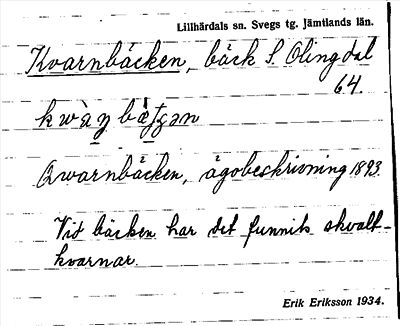 Lillhärdals sn. Svegs tg. Jämtlands län.
Kvarnbäcken, bäck S. Olingdal
64.
Qvarnbäcken, ägobeskrivning 1893
Vid bäcken har det funnits skvalt-
kvarnar.
Erik Eriksson 1934.